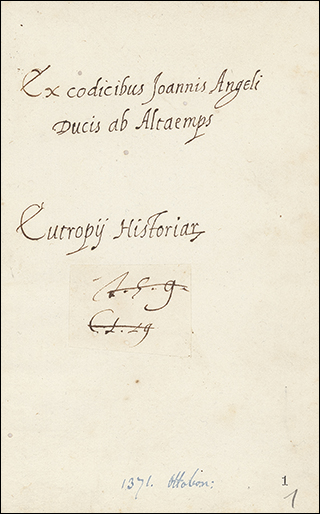 Ex codicibus Joannis Angeli
Ducis ab Altaemps
Eutropij Historiar
A. 5. 9.
C. 1. 29
1371. Ottobon:
1
1